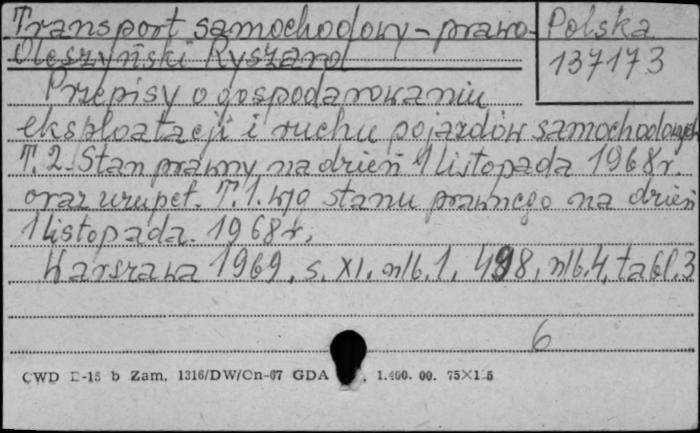 Transport samochodowy - prawo - Polska
Oleszyński Ryszard
137173
Przepisy o gospodarowaniu
eksploatacji i ruchu pojazdów samochodowych
T. 2. Stan prawny na dzień 1 listopada 1968 r.
oraz uzupeł. T. 1. wg stanu prawnego na dzień
1 listopada. 1968 r.
Warszawa 1969, s. XI, nlb. 1, 498, nlb. 4, tabl. 3
6
CWD D-15 b Zam. 1316/DW/Cn-67 GDA 1.400.00. 75X125